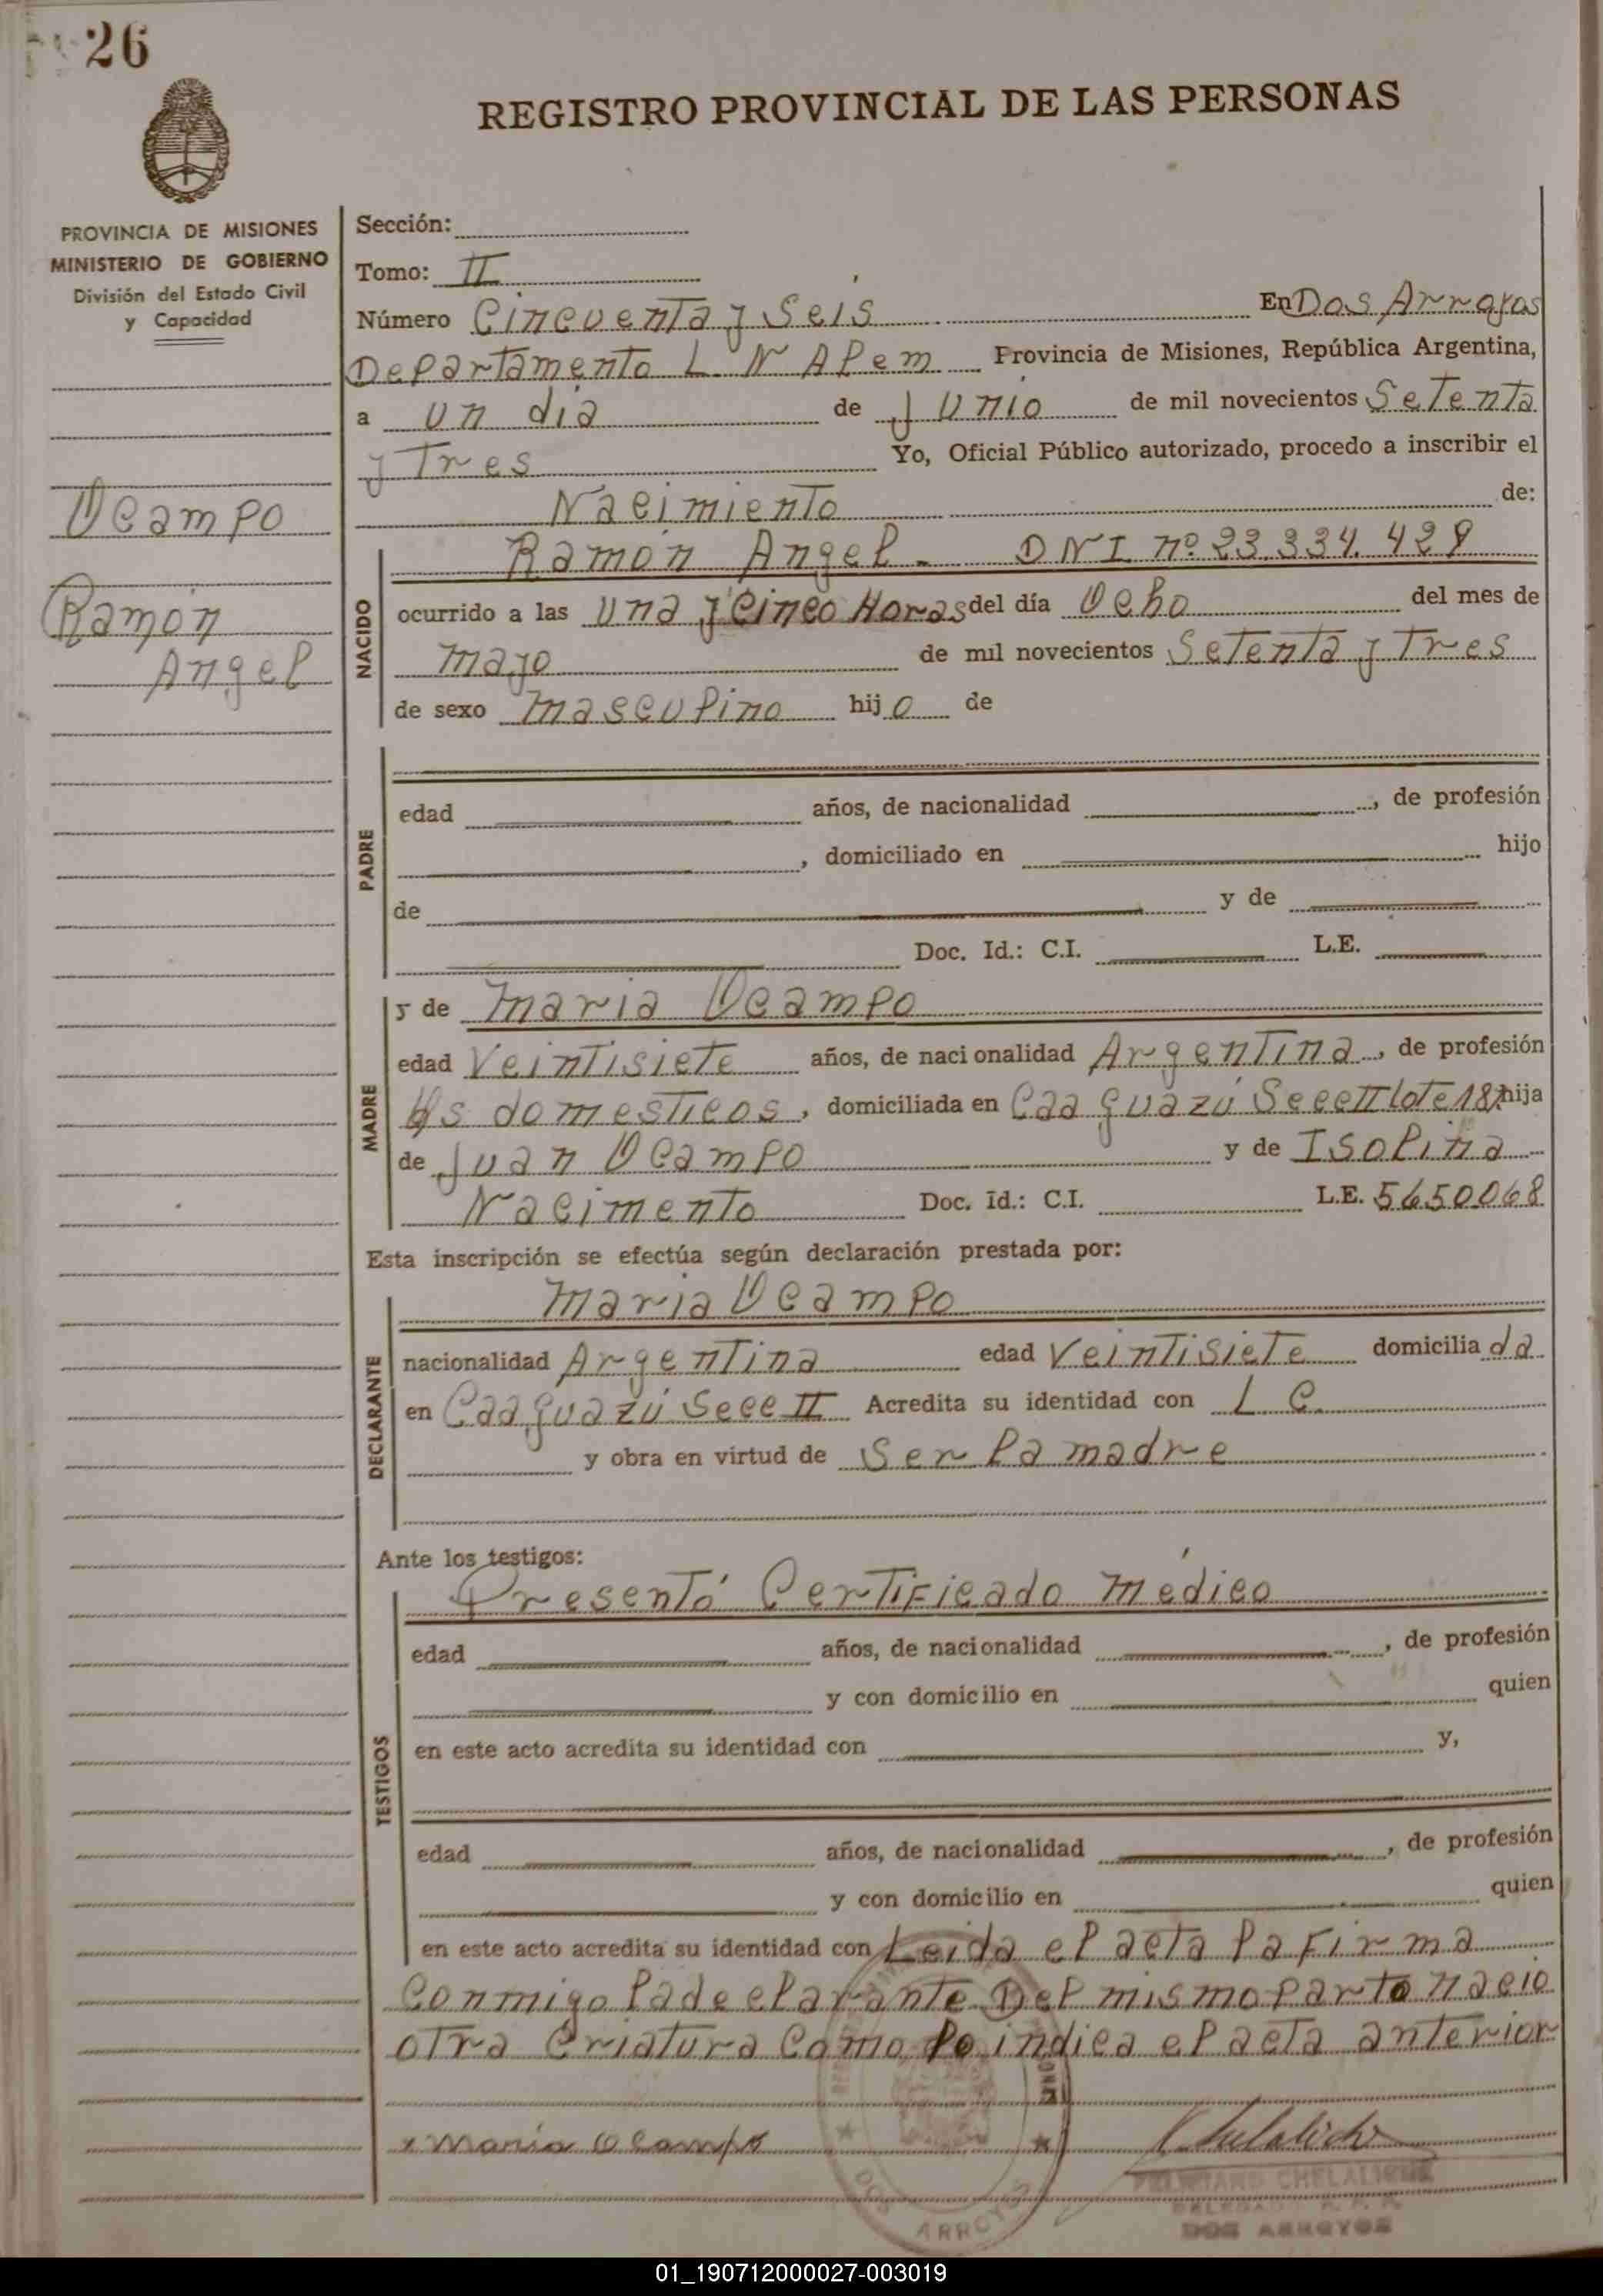 26
REGISTRO PROVINCIAL DE LAS PERSONAS
PROVINCIA DE MISIONES
MINISTERIO DE GOBIERNO
División del Estado Civil
y Capacidad
Ocampo
Ramón
Angel
Sección:
Tomo: II
Número Cincuenta y Seis En Dos Arroyos
Departamento L. N Alem Provincia de Misiones, República Argentina,
a un dia de Junio de mil novecientos Setenta
y Tres Yo, Oficial Público autorizado, procedo a inscribir el
Nacimiento de:
NACIDO
Ramón Angel - DNI nº 23.334.429
ocurrido a las una y cinco Horas del día Ocho del mes de
mayo de mil novecientos Setenta y Tres
de sexo masculino hijo de
PADRE
edad años, de nacionalidad , de profesión
, domiciliado en hijo
de y de
Doc. Id.: C.I. L.E.
MADRE
y de Maria Ocampo
edad Veintisiete años, de nacionalidad Argentina, de profesión
Qs domesticos, domiciliada en Caa guazú Secc II lote 187 hija
de Juan Ocampo y de Isolina
Nacimento Doc. Id.: C.I. L.E. 5650068
Esta inscripción se efectúa según declaración prestada por:
DECLARANTE
Maria Ocampo
nacionalidad Argentina edad Veintisiete domiciliada
en Caa guazú Secc II Acredita su identidad con L C.
y obra en virtud de Ser la madre
Ante los testigos:
TESTIGOS
Presentó Certificado Médico
edad años, de nacionalidad , de profesión
y con domicilio en quien
en este acto acredita su identidad con y,
edad años, de nacionalidad , de profesión
y con domicilio en quien
en este acto acredita su identidad con Leida el acta la Firma
Conmigo la declarante Del mismo parto nacio
otra Criatura Como lo indica el acta anterior
x Maria Ocampo
CHELALICHE
DOS ARROYOS
DOS ARROYOS
01_190712000027-003019